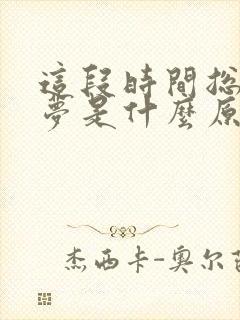 這段時間總
夢是什麼原
杰西卡-奧尔